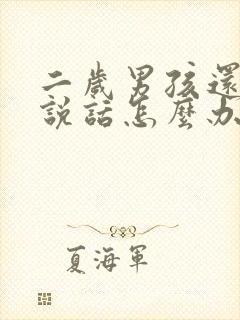 二歲男孩還
説話怎麼办
夏海軍